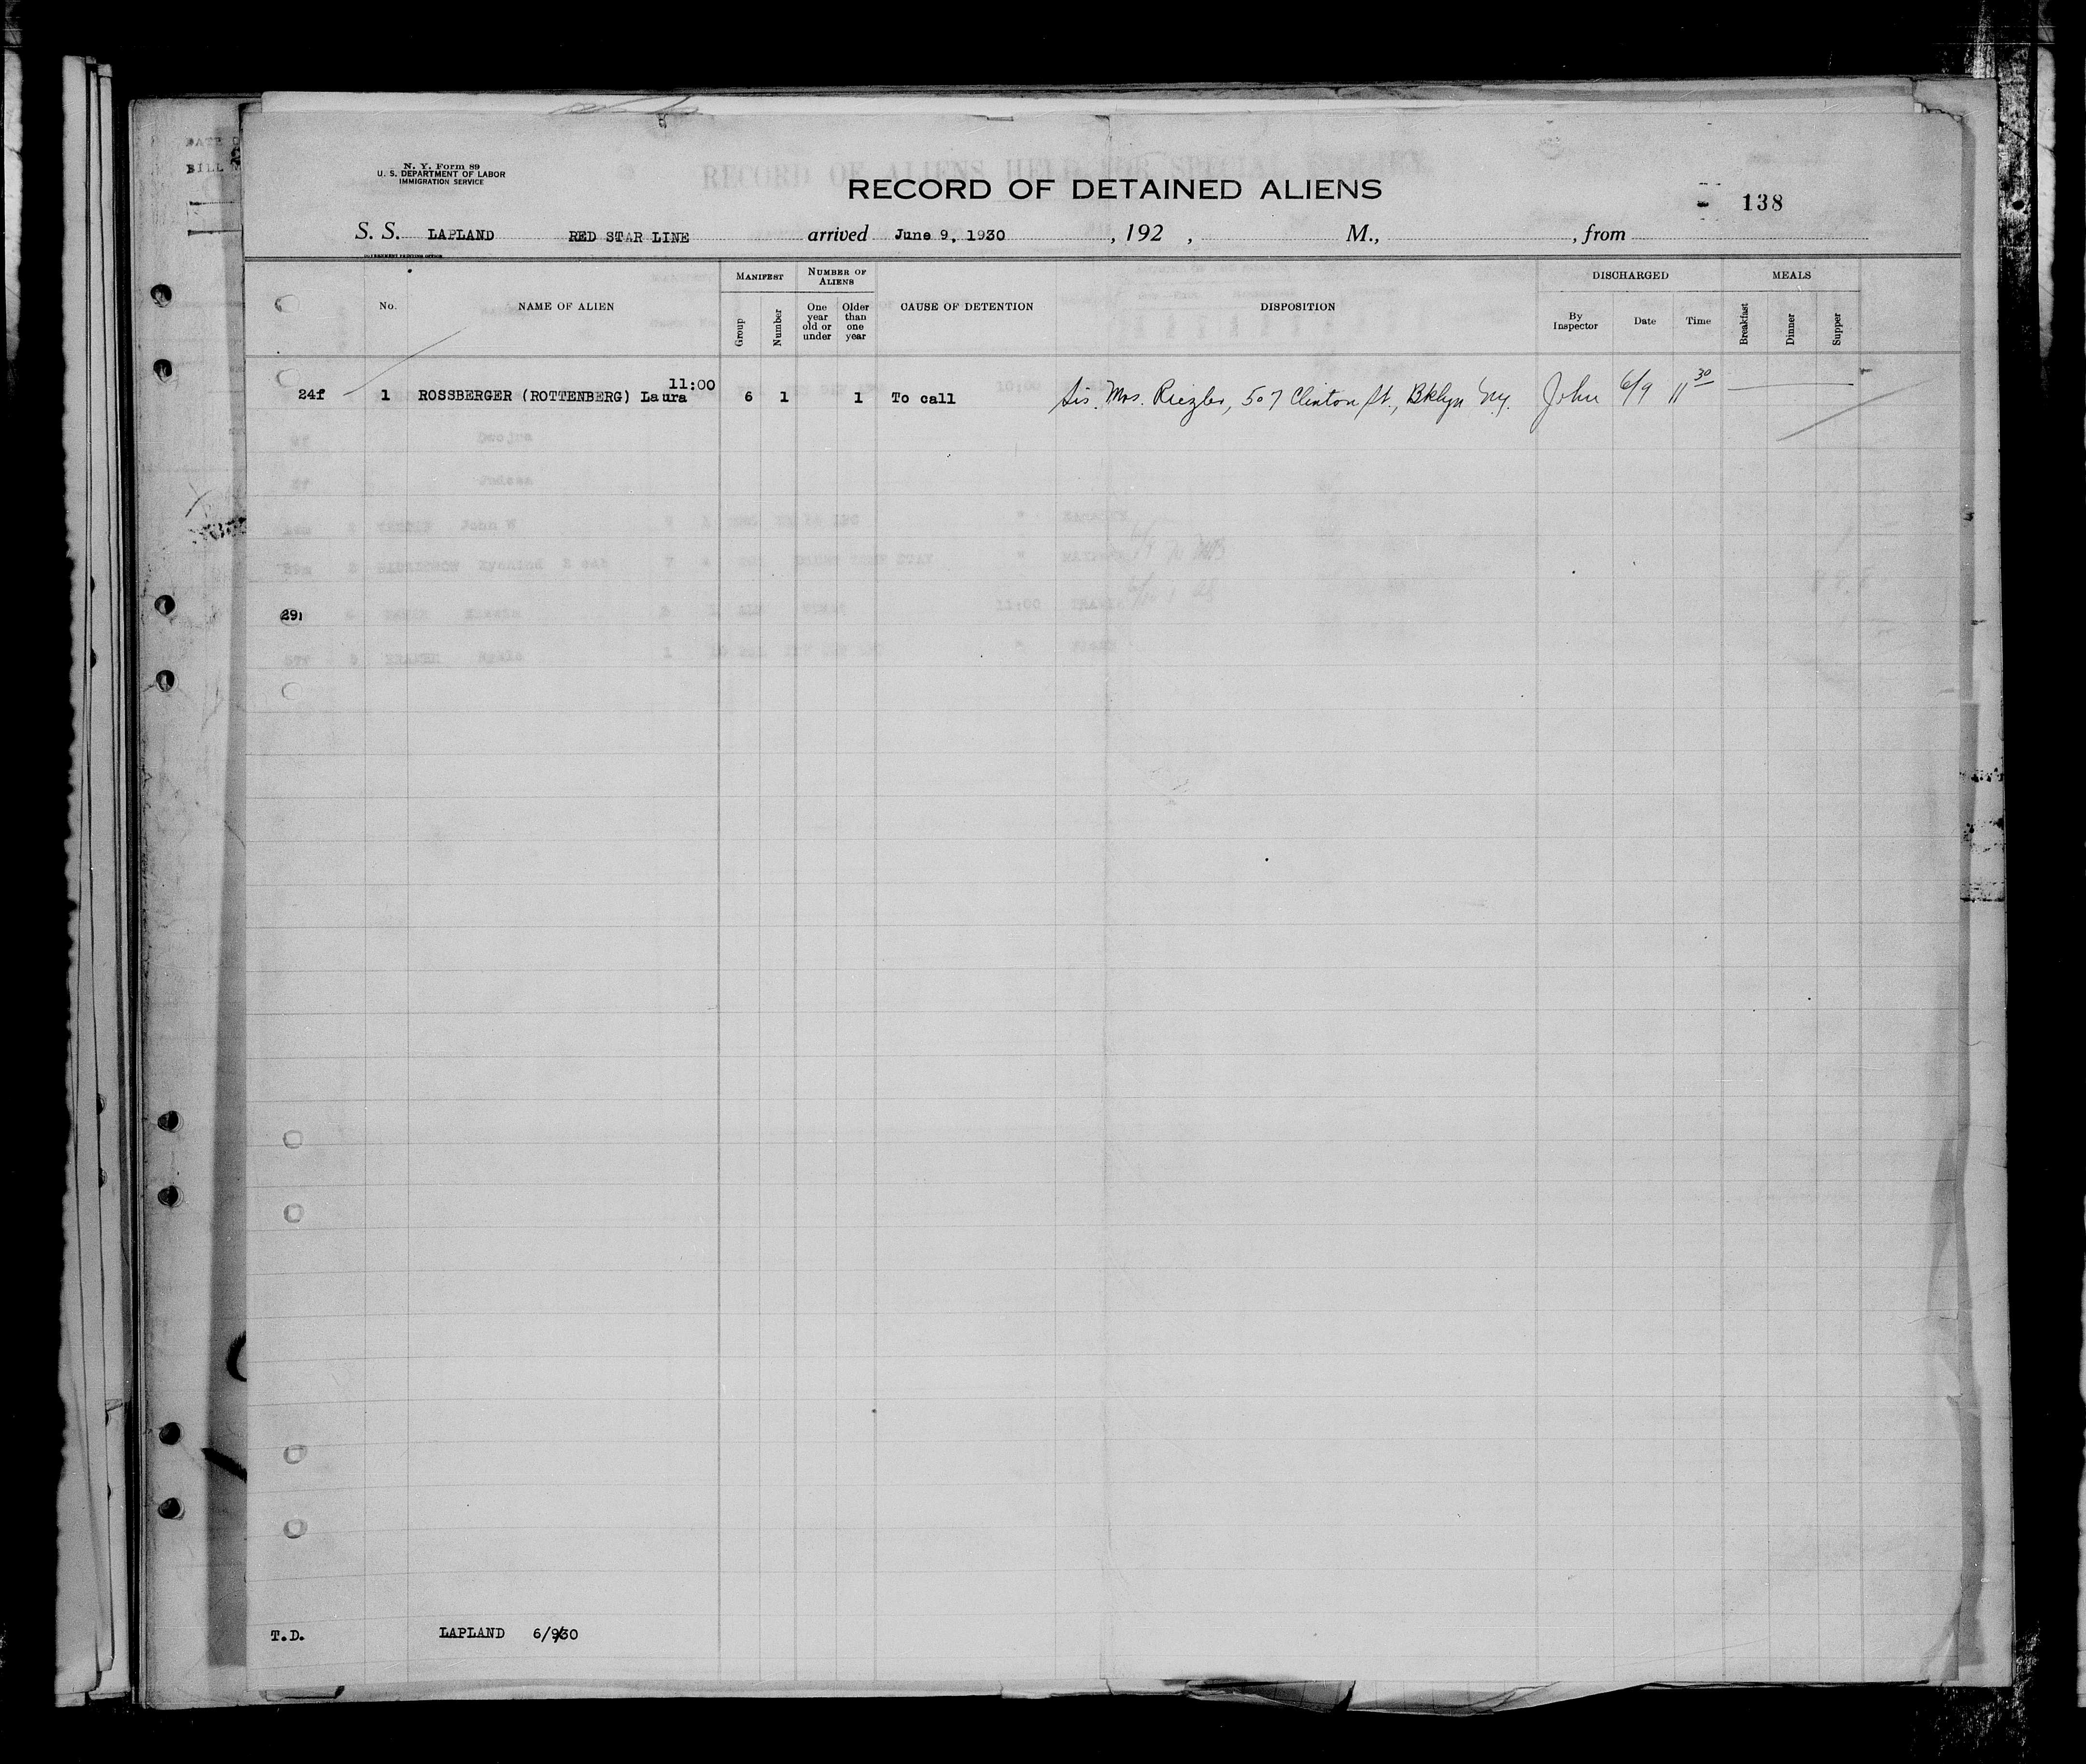 DATE
BILL
N. Y. Form 89
U. S. DEPARTMENT OF LABOR
IMMIGRATION SERVICE
RECORD OF ALIENS HELD FOR SPECIAL INQUIRY
RECORD OF DETAINED ALIENS
138
S. S. LAPLAND RED STAR LINE arrived June 9, 1930 , 192 , M., , from
GOVERNMENT PRINTING OFFICE
No. NAME OF ALIEN MANIFEST Group Number NUMBER OF ALIENS One year old or under Older than one year CAUSE OF DETENTION DISPOSITION DISCHARGED By Inspector Date Time MEALS Breakfast Dinner Supper
11:00
24f 1 ROSSBERGER (ROTTENBERG) Laura 6 1 1 To call Sis. Mrs. Riezler, 507 Clinton St., Bklyn NY. John 6/9 11 30
Dwojra
John W
29
11:00
T.D. LAPLAND 6/9/30